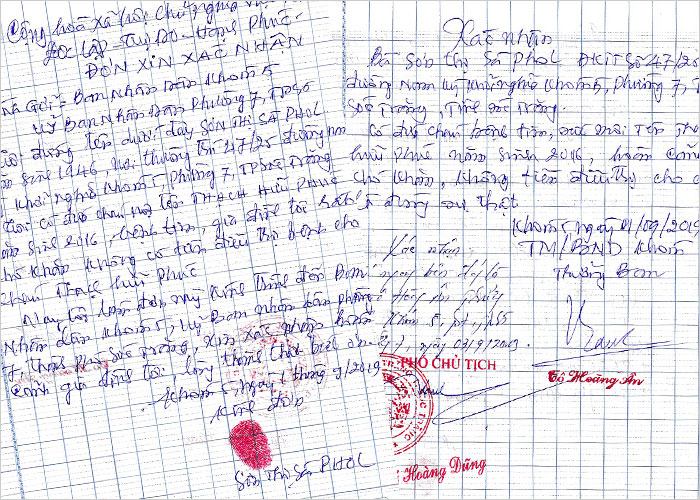 Cộng hoà Xã hội Chủ nghĩa
Độc Lập - Tự Do - Hạnh Phúc
ĐƠN XIN XÁC NHẬN
Gởi = Ban Nhân Dân Khóm 5
Uỷ Ban Nhân Dân Phường 7, TPST
đứng tên dưới đây SƠN THỊ SÀ PHOL
Sinh 1946, nơi thường trú 47/25 đường
Khởi Nghĩa Khóm 5, Phường 7, TP Sóc Trăng
Tôi có đứa cháu nội tên THẠCH HỮU PHÚC
Sinh 2016, bệnh tim, gia đình tôi rất
khó khăn không có tiền điều trị bệnh cho
cháu Thạch Hữu Phúc
Nay tôi làm đơn này kính trình đến Ban
Nhân dân Khóm 5, Uỷ Ban Nhân dân phường
7, thành phố Sóc Trăng, xin xác nhận hoàn
cảnh gia đình tôi
Khóm 5, ngày 1 tháng 9/2019
Kính đơn
Sơn Thị Sà PHOL
Xác nhận
Bà Sơn Thị Sà PHOL ĐKTT Số 47/25
đường Nam Kỳ Khởi nghĩa Khóm 5, Phường 7, TP
Sóc Trăng, Tỉnh Sóc Trăng.
Có đứa cháu bệnh tim,
Hữu Phúc năm sinh 2016, hoàn cảnh
khó khăn, không tiền điều trị cho
đúng sự thật
Khóm 5 ngày 01/09/2019
TM/BND Khóm
Trưởng Ban
Xác nhận
Khóm 5, P7, TPST
P7, ngày 03/9/2019.
PHÓ CHỦ TỊCH
Hoàng Dũng
Cô Hoàng Ân